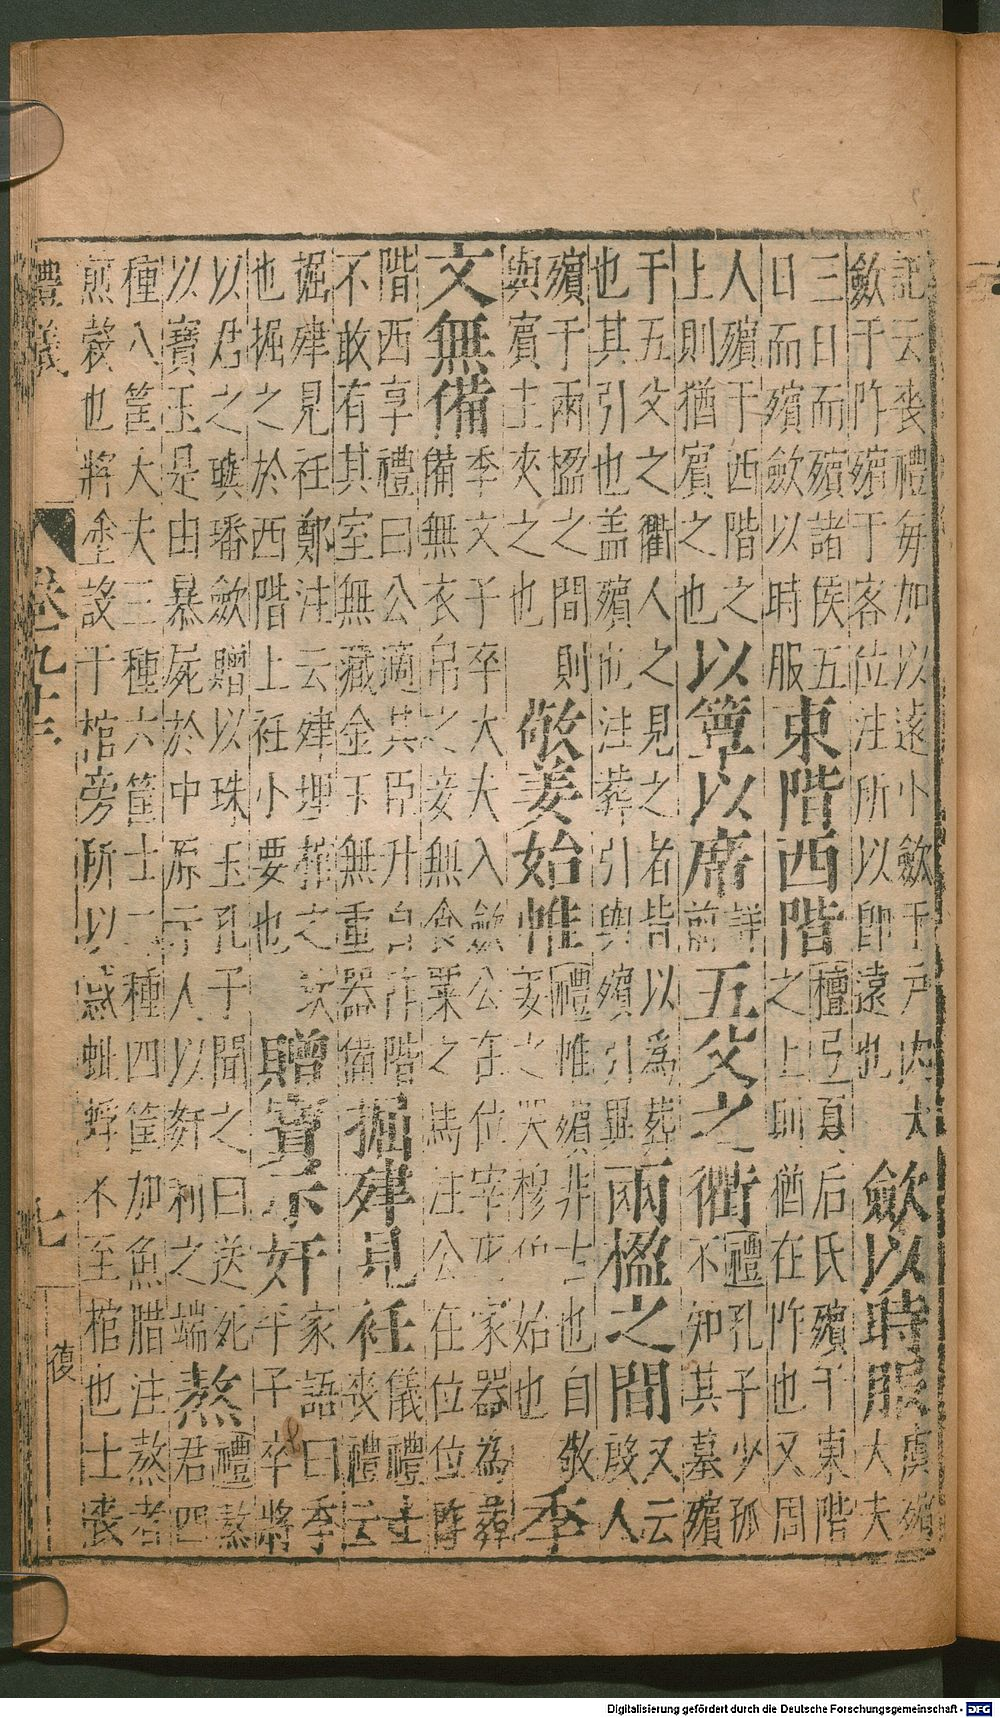 記云喪禮毎加以遠小斂于戶内大
斂于阼殯于客位注所以即遠也
斂以時服
虞殯
大夫
三日而殯諸侯五
日而殯斂以時服
東階西階
檀弓夏后氏殯于東階
之上則猶在阼也又周
人殯于西階之
上則猶賓之也
以簟以席
詳
前
五父之衢
禮孔子少孤
不知其墓殯
于五父之衢人之見之者皆以為葬
也其引也盖殯也注葬引與殯引異
兩楹之間
又云
殷人
殯于兩楹之間則
與賓主夾之也
敬姜始帷
禮帷殯非古也自敬
姜之哭穆伯始也
季
文無備
季文子卒大夫入斂公在位宰庀家器為葬
備無衣帛之妾無食粟之馬注公在位位阼
階西享禮曰公適其臣升自阼階
不敢有其室無藏金玉無重器備
掘肂見衽
儀禮士
喪禮云
掘肂見衽鄭注云肂埋棺之坎
也掘之於西階上衽小要也
贈寶示奸
家語曰季
平子卒將
以君之璵璠斂贈以珠玉孔子聞之曰送死
以寶玉是由暴屍於中原示人以奸利之端
熬
禮熬
君四
種八筐大夫三種六筐士二種四筐加魚腊注熬者
煎穀也將塗設于棺旁所以惑蚍蜉不至棺也士喪
禮儀
卷九十三
七
復
Digitalisierung gefördert durch die Deutsche Forschungsgemeinschaft - DFG